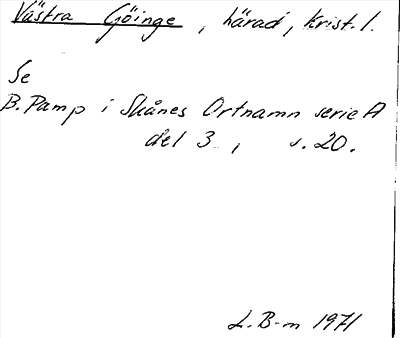 Västra Göinge, härad, krist. l.
Se
B. Pamp i Skånes Ortnamn serie A
del 3, s. 20.
L. B-m 1971